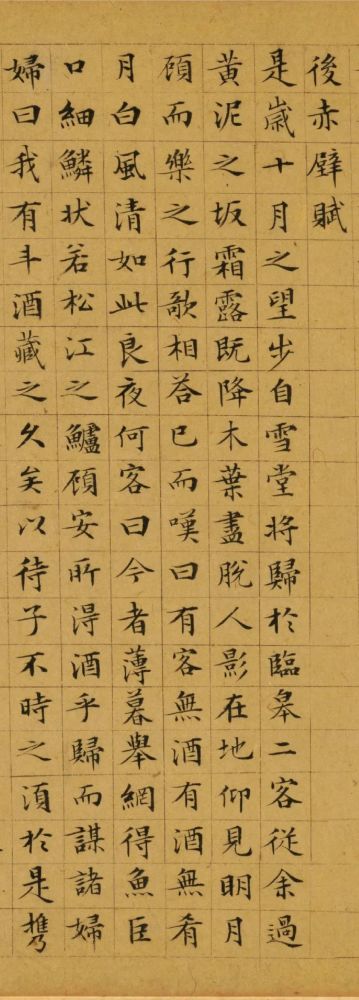 後赤壁賦
是歲十月之望步自雪堂將歸於臨皋二客從余過
黃泥之坂霜露既降木葉盡脫人影在地仰見明月
顧而樂之行歌相荅已而嘆曰有客無酒有酒無肴
月白風清如此良夜何客曰今者薄暮舉網得魚臣
口細鱗狀若松江之鱸顧安所得酒乎歸而謀諸婦
婦曰我有斗酒藏之久矣以待子不時之湏於是携